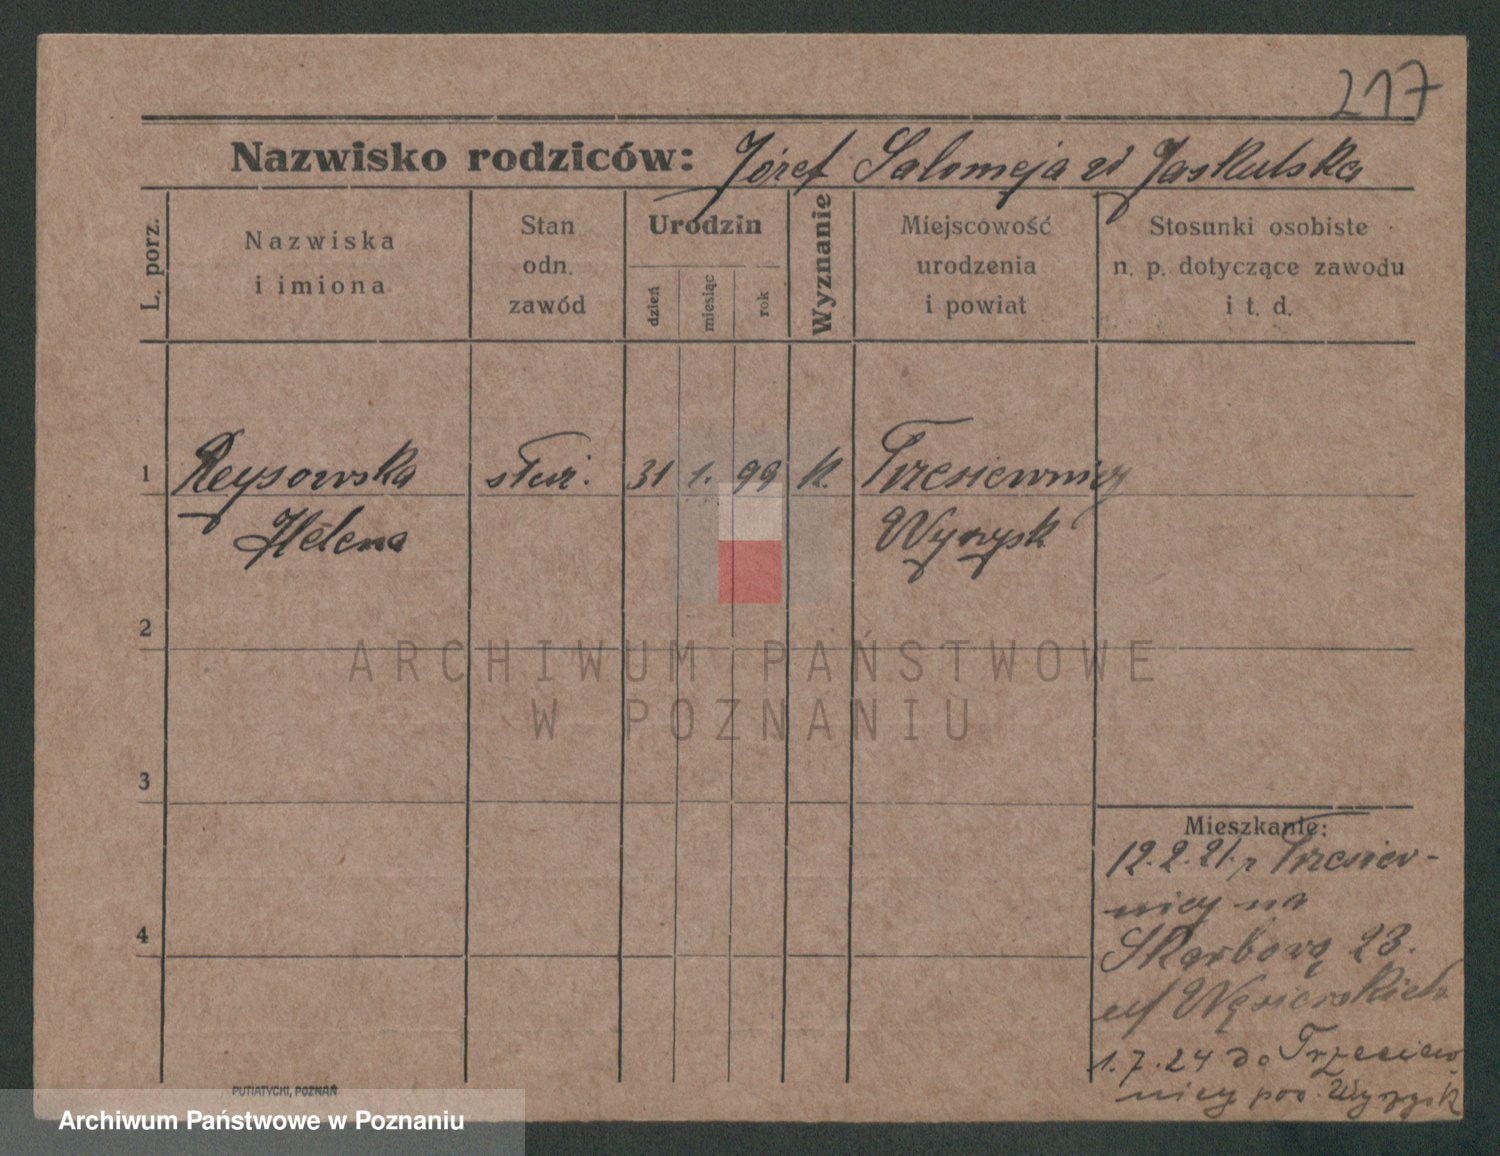 217
Nazwisko rodziców: Józef Salomeja zd Jaskulska
L. porz.
Nazwiska
i imiona
Stan
odn.
zawód
Urodzin
dzień
miesiąc
rok
Wyznanie
Miejscowość
urodzenia
i powiat
Stosunki osobiste
n. p. dotyczące zawodu
i t. d.
1 Reysowska służ. 31 1. 99 k. Trzesiewnicy
Helena Wyrzysk
2
ARCHIWUM PAŃSTWOWE
W POZNANIU
3
Mieszkanie:
12.2.21. z Trzesiew-
nicy na
4
Skarbową 23.
1.7.24 do Trzeciew
nicy pow. Wyrzysk
PUTIATYCKI, POZNAŃ
Archiwum Państwowe w Poznaniu